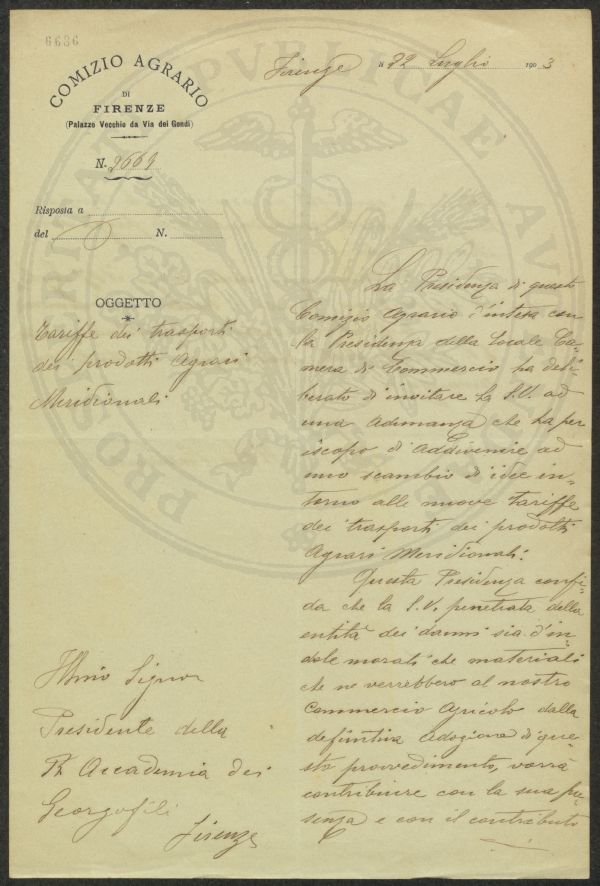 6636
COMIZIO AGRARIO
DI
FIRENZE
(Palazzo Vecchio da Via dei Gondi)
N. 2669
Risposta a
del N.
OGGETTO
Tariffe dei trasporti
dei prodotti Agrari
Meridionali
Firenze li 22 Luglio 1903
La Presidenza di questo
Comizio Agrario d'intesa con
la Presidenza della locale Ca-
mera di Commercio ha deli-
berato di invitare la S.V. ad
una adunanza che ha per
iscopo di addivenire ad
uno scambio di idee in-
torno alle nuove tariffe
dei trasporti dei prodotti
Agrari Meridionali.
Questa Presidenza confi-
da che la S.V. penetrata della
entità dei danni sia d'in-
dole morali che materiali
che ne verrebbero al nostro
Commercio Agricolo dalla
definitiva adozione di que-
sto provvedimento, vorrà
contribuire con la sua pre-
senza e con il contributo
Illmo Signor
Presidente della
R. Accademia dei
Georgofili
Firenze
PROSPERITATI PUBLICAE AU